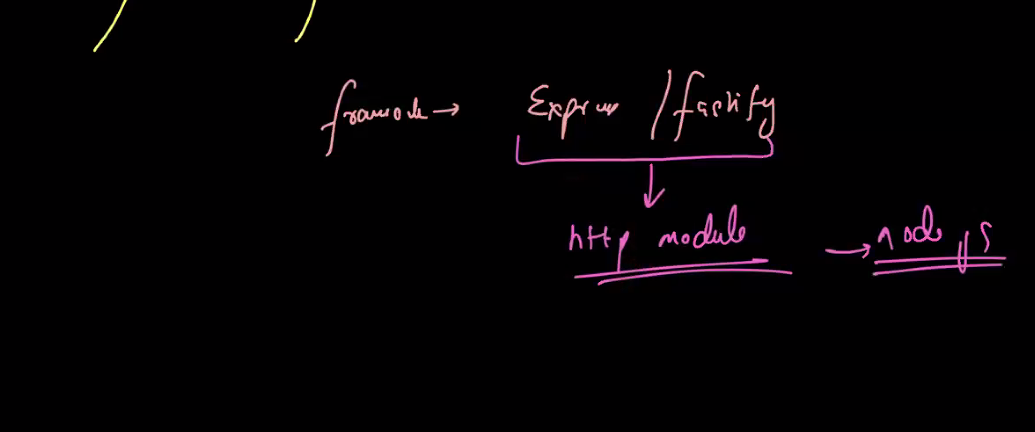 framework → Express / fastify
http module → node js